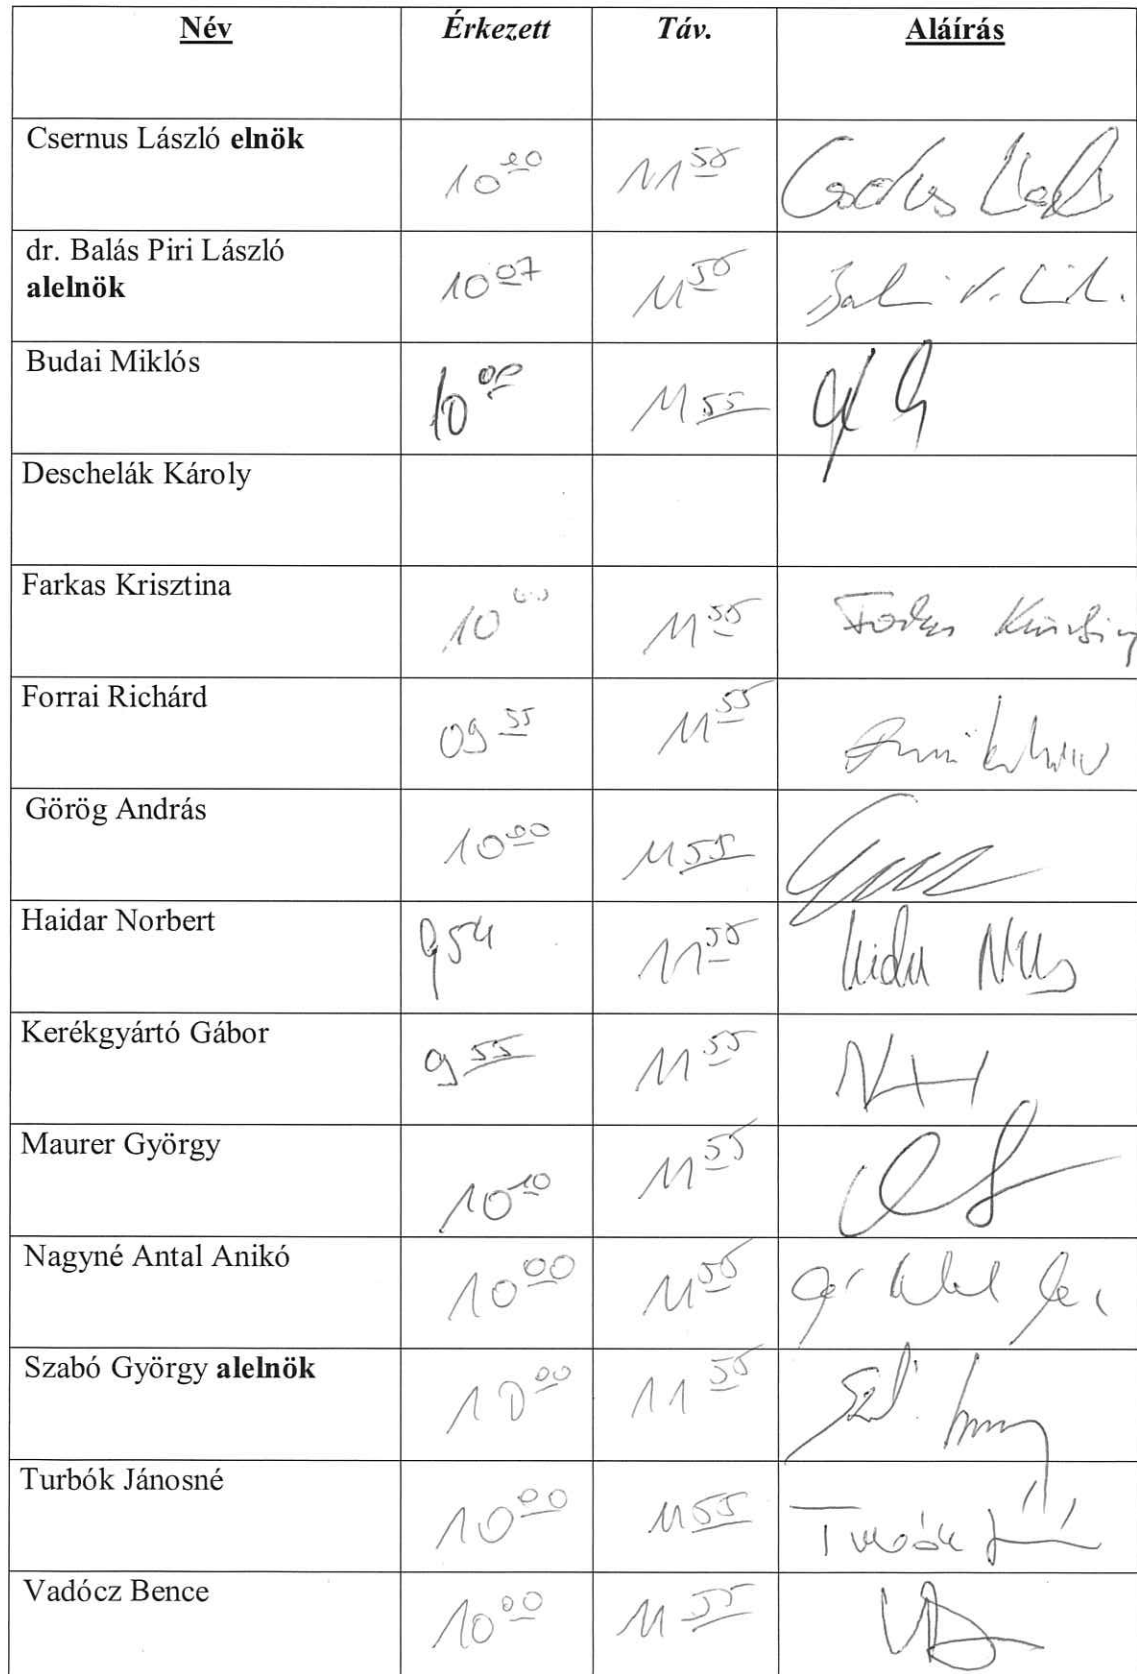 Név Érkezett Táv. Aláírás
Csernus László elnök 10 00 11 55
dr. Balás Piri László
alelnök 10 07 11 55
Budai Miklós 10 00 11 55
Deschelák Károly
Farkas Krisztina 10 00 11 55 Farkas Krisztina
Forrai Richárd 09 55 11 55
Görög András 10 00 11 55
Haidar Norbert 9 54 11 55
Kerékgyártó Gábor 9 55 11 55
Maurer György 10 10 11 55
Nagyné Antal Anikó 10 00 11 55
Szabó György alelnök 10 00 11 55
Turbók Jánosné 10 00 11 55
Vadócz Bence 10 00 11 55